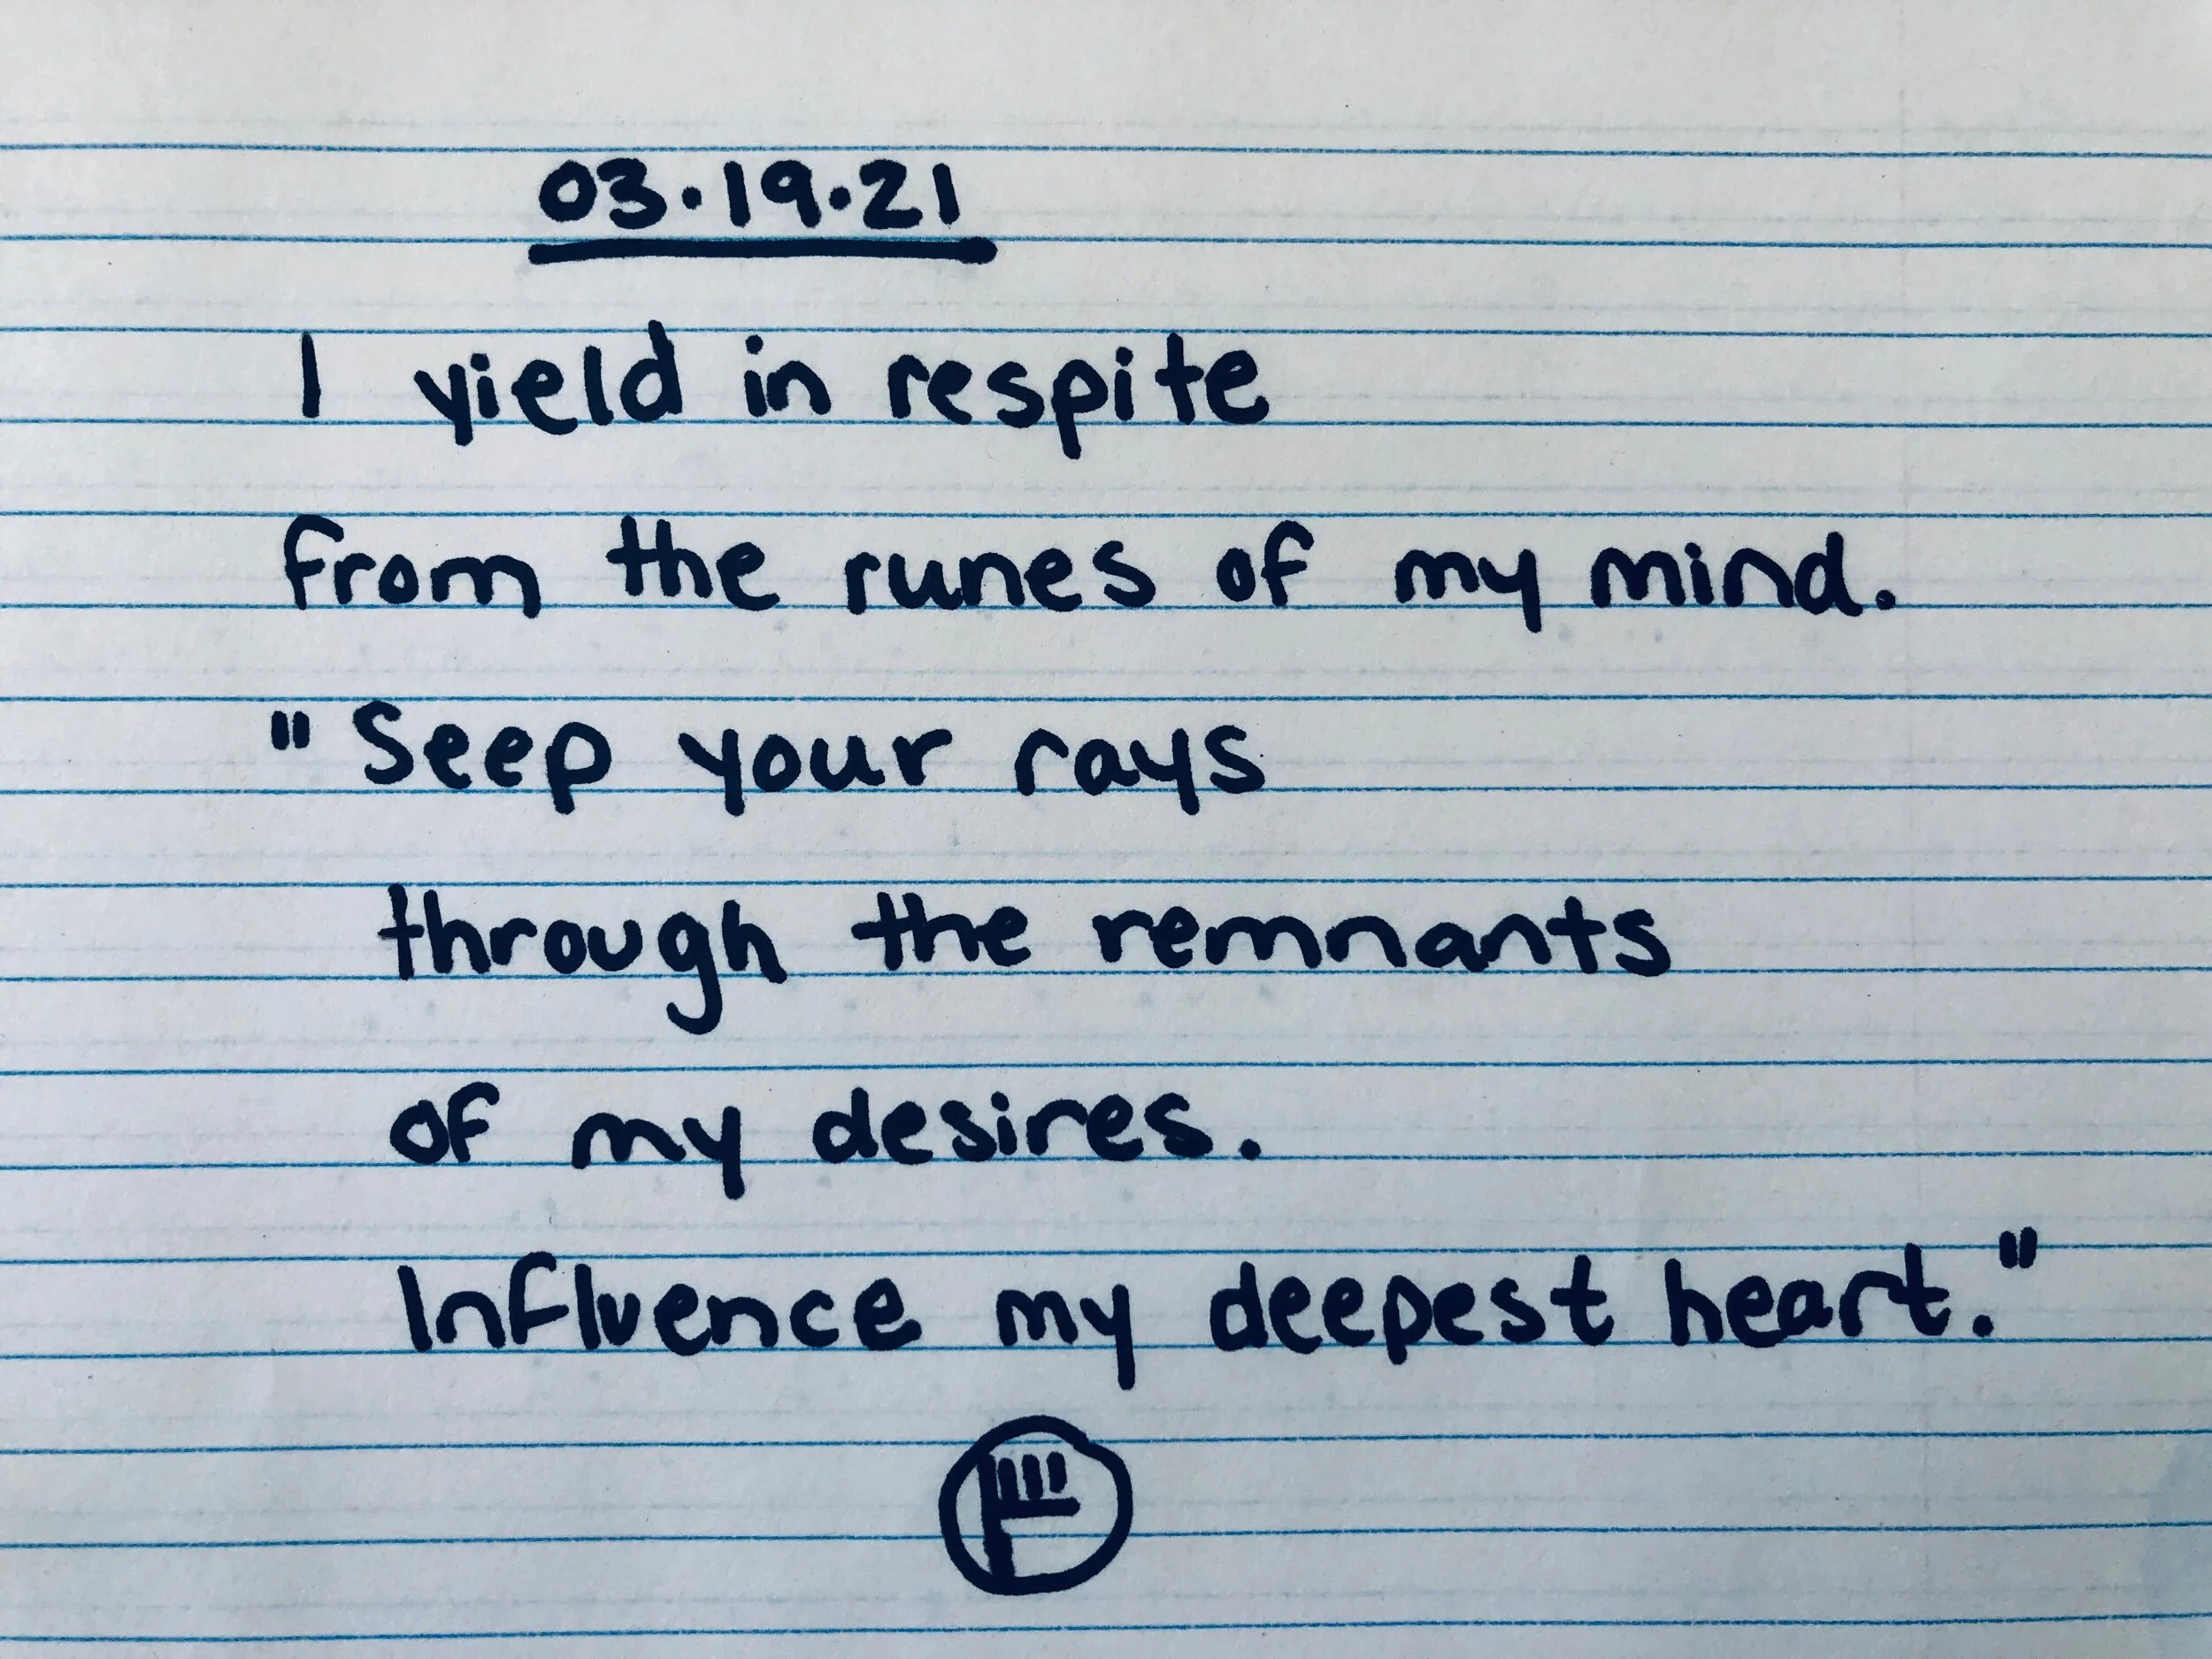 03.19.21
I yield in respite
from the runes of my mind.
"Seep your rays
through the remnants
of my desires.
Influence my deepest heart."